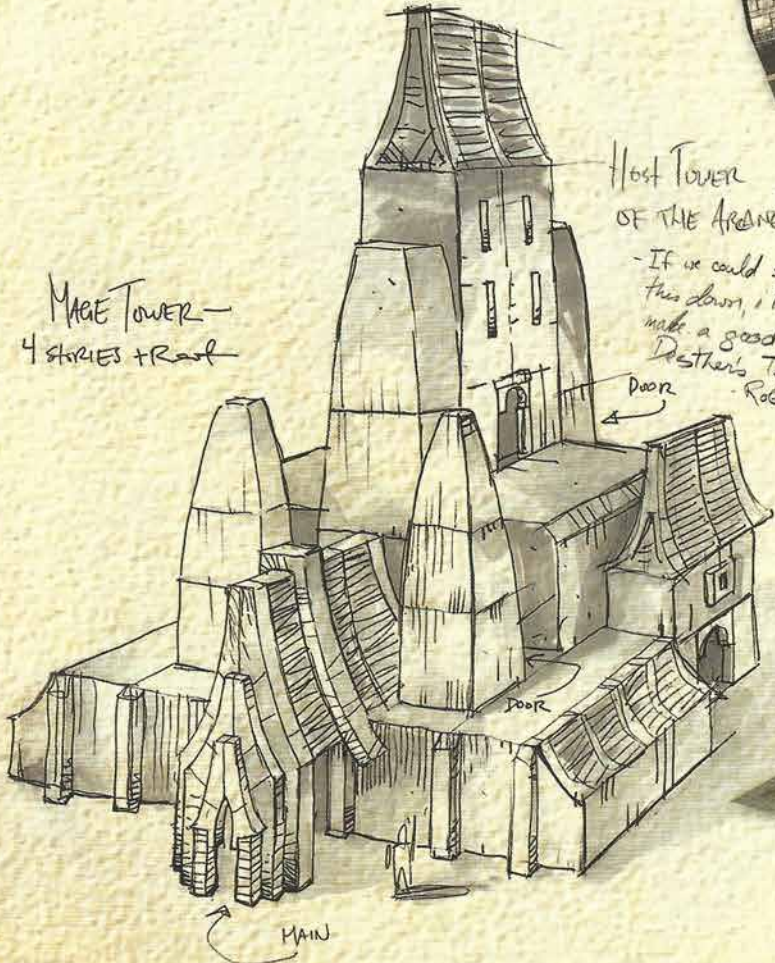 MAGE TOWER —
4 STORIES + ROOF
HOST TOWER
OF THE ARCANE
- If we could
this down, i
make a good
Desther's T
- Rob
DOOR
DOOR
MAIN